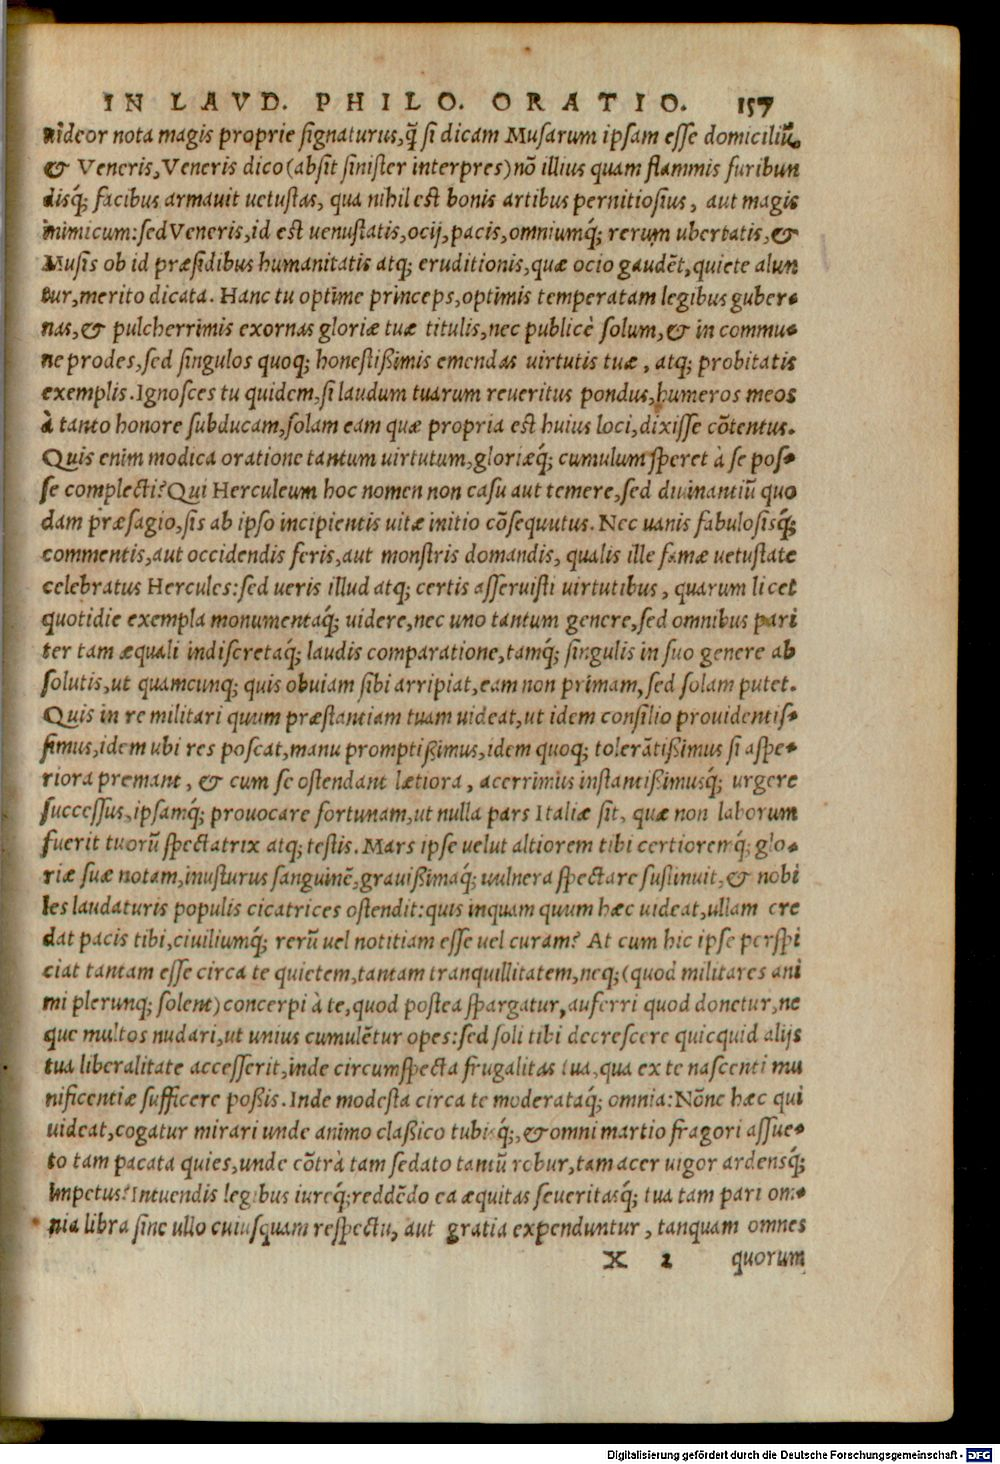 IN LAVD. PHILO. ORATIO. 157
uideor nota magis proprie signaturus,q̃ si dicam Musarum ipsam esse domiciliũ,
& Veneris, Veneris dico (absit sinister interpres) nõ illius quam flammis furibun
disq́; facibus armauit uetustas, qua nihil est bonis artibus pernitiosius, aut magis
inimicum: sed Veneris, id est uenustatis, ocij, pacis, omniumq́; rerum ubertatis, &
Musis ob id præsidibus humanitatis atq; eruditionis, quæ ocio gaudẽt, quiete alun
tur, merito dicata. Hanc tu optime princeps, optimis temperatam legibus guber-
nas, & pulcherrimis exornas gloriæ tuæ titulis, nec publicè solum, & in commu-
ne prodes, sed singulos quoq; honestißimis emendas uirtutis tuæ, atq; probitatis
exemplis. Ignosces tu quidem, si laudum tuarum reueritus pondus, humeros meos
à tanto honore subducam, solam eam quæ propria est huius loci, dixisse cõtentus.
Quis enim modica oratione tantum uirtutum, gloriæq́; cumulum speret à se pos-
se complecti? Qui Herculeum hoc nomen non casu aut temere, sed diuinantiũ quo
dam præsagio, sis ab ipso incipientis uitæ initio cõsequutus. Nec uanis fabulosisq́;
commentis, aut occidendis feris, aut monstris domandis, qualis ille famæ uetustate
celebratus Hercules: sed ueris illud atq; certis asseruisti uirtutibus, quarum licet
quotidie exempla monumentaq́; uidere, nec uno tantum genere, sed omnibus pari
ter tam æquali indiscretaq́; laudis comparatione, tamq́; singulis in suo genere ab
solutis, ut quamcunq; quis obuiam sibi arripiat, eam non primam, sed solam putet.
Quis in re militari quum præstantiam tuam uideat, ut idem consilio prouidentis-
simus, idem ubi res poscat, manu promptißimus, idem quoq; tolerãtißimus si aspe-
riora premant, & cum se ostendant lætiora, acerrimus instantißimusq́; urgere
successus, ipsamq́; prouocare fortunam, ut nulla pars Italiæ sit, quæ non laborum
fuerit tuorũ spectatrix atq; testis. Mars ipse uelut altiorem tibi certioremq́; glo-
riæ suæ notam, inusturus sanguinẽ, grauißimaq́; uulnera spectare sustinuit, & nobi
les laudaturis populis cicatrices ostendit: quis inquam quum hæc uideat, ullam cre
dat pacis tibi, ciuiliumq́; rerũ uel notitiam esse uel curam? At cum hic ipse perspi
ciat tantam esse circa te quietem, tantam tranquillitatem, neq; (quod militares ani
mi plerunq; solent) concerpi à te, quod postea spargatur, auferri quod donetur, ne
que multos nudari, ut unius cumulẽtur opes: sed soli tibi decrescere quicquid alijs
tua liberalitate accesserit, inde circumspecta frugalitas tua, qua ex te nascenti mu
nificentiæ sufficere poßis. Inde modesta circa te moderataq́; omnia: Nõne hæc qui
uideat, cogatur mirari unde animo claßico tubisq́;, & omni martio fragori assue-
to tam pacata quies, unde cõtrà tam sedato tantũ robur, tam acer uigor ardensq́;
impetus? Intuendis legibus iureq́; reddẽdo ea æquitas seueritasq́; tua tam pari om-
nia libra sine ullo cuiusquam respectu, aut gratia expenduntur, tanquam omnes
X 2 quorum
Digitalisierung gefördert durch die Deutsche Forschungsgemeinschaft - DFG